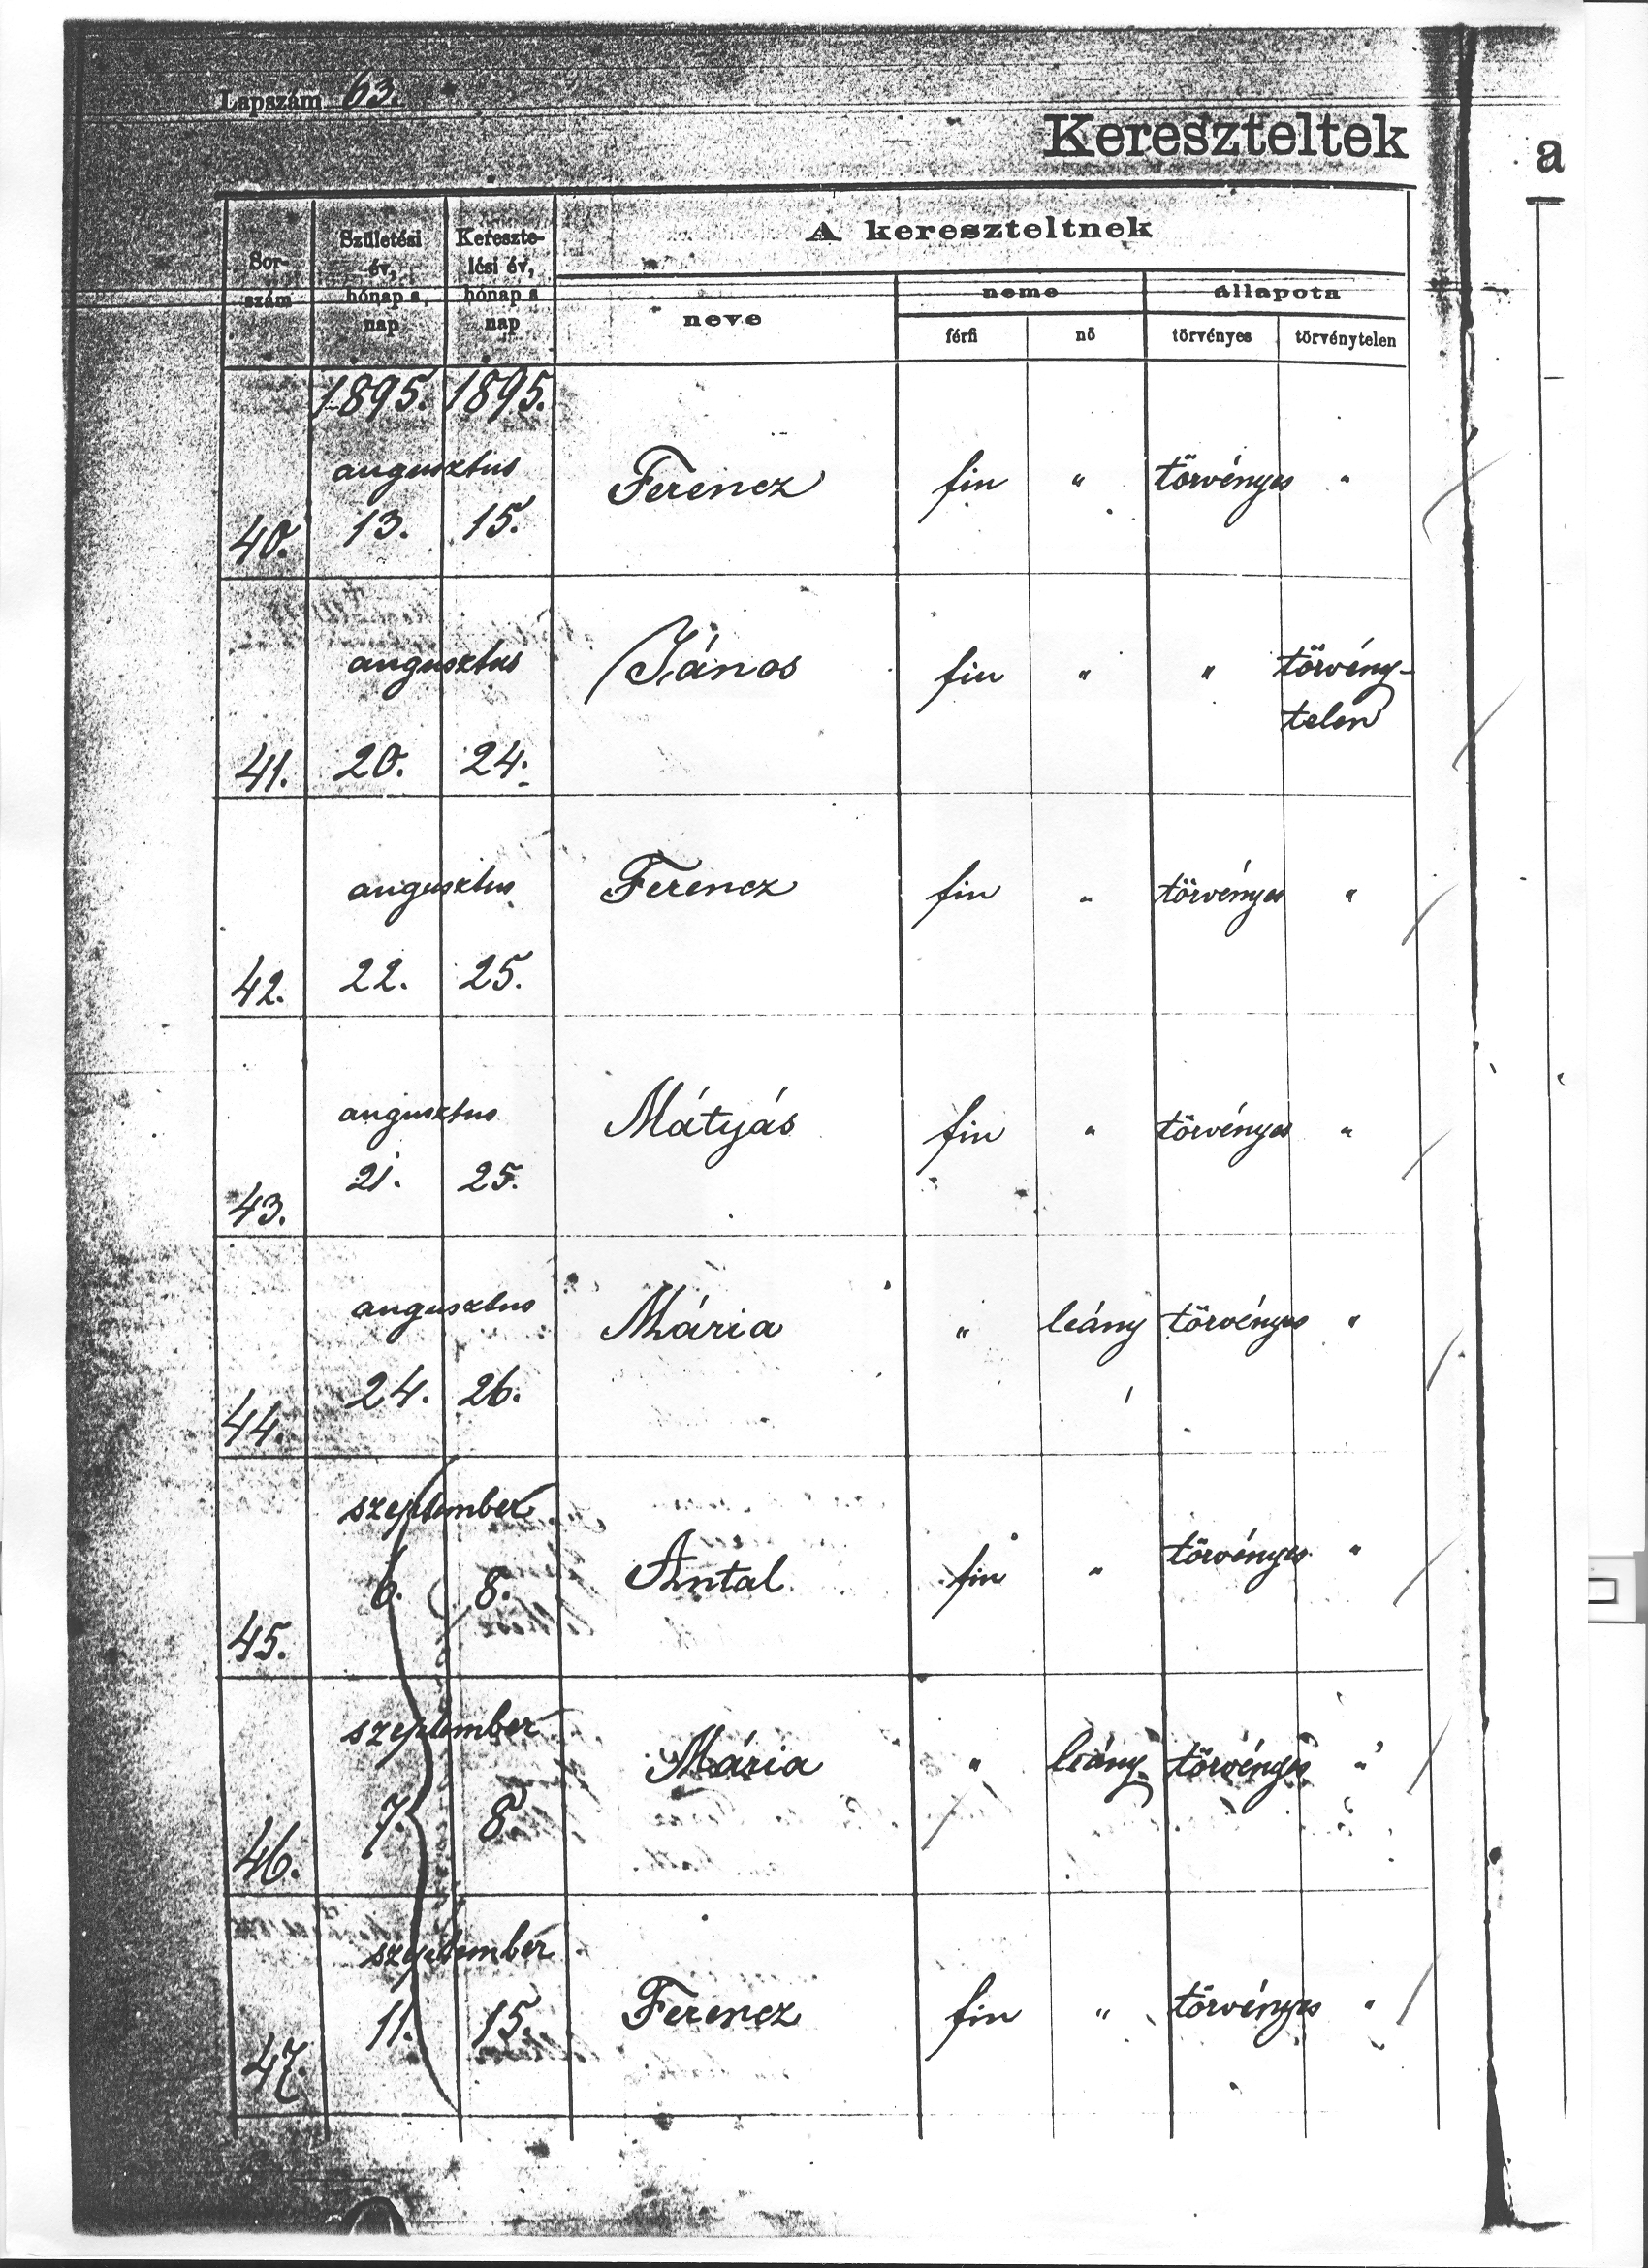 Lapszám 63.
Kereszteltek
a
Sor-
szám
Születési
év,
hónap s
nap
Keresztelési év,
hónap s
nap
A kereszteltnek
neve
neme
állapota
férfi
nő
törvényes
törvénytelen
1895. 1895.
augusztus
40. 13. 15. Ferencz fiu " törvényes "
augusztus
41. 20. 24. János fiu " " törvény-
telen
augusztus
42. 22. 25. Ferencz fiu " törvényes "
augusztus
43. 21. 25. Mátyás fiu " törvényes "
augusztus
44. 24. 26. Mária " leány törvényes "
szeptember
45. 6. 8. Antal fiu " törvényes "
szeptember
46. 7. 8. Mária " leány törvényes "
szeptember
47. 11. 15. Ferencz fiu " törvényes "